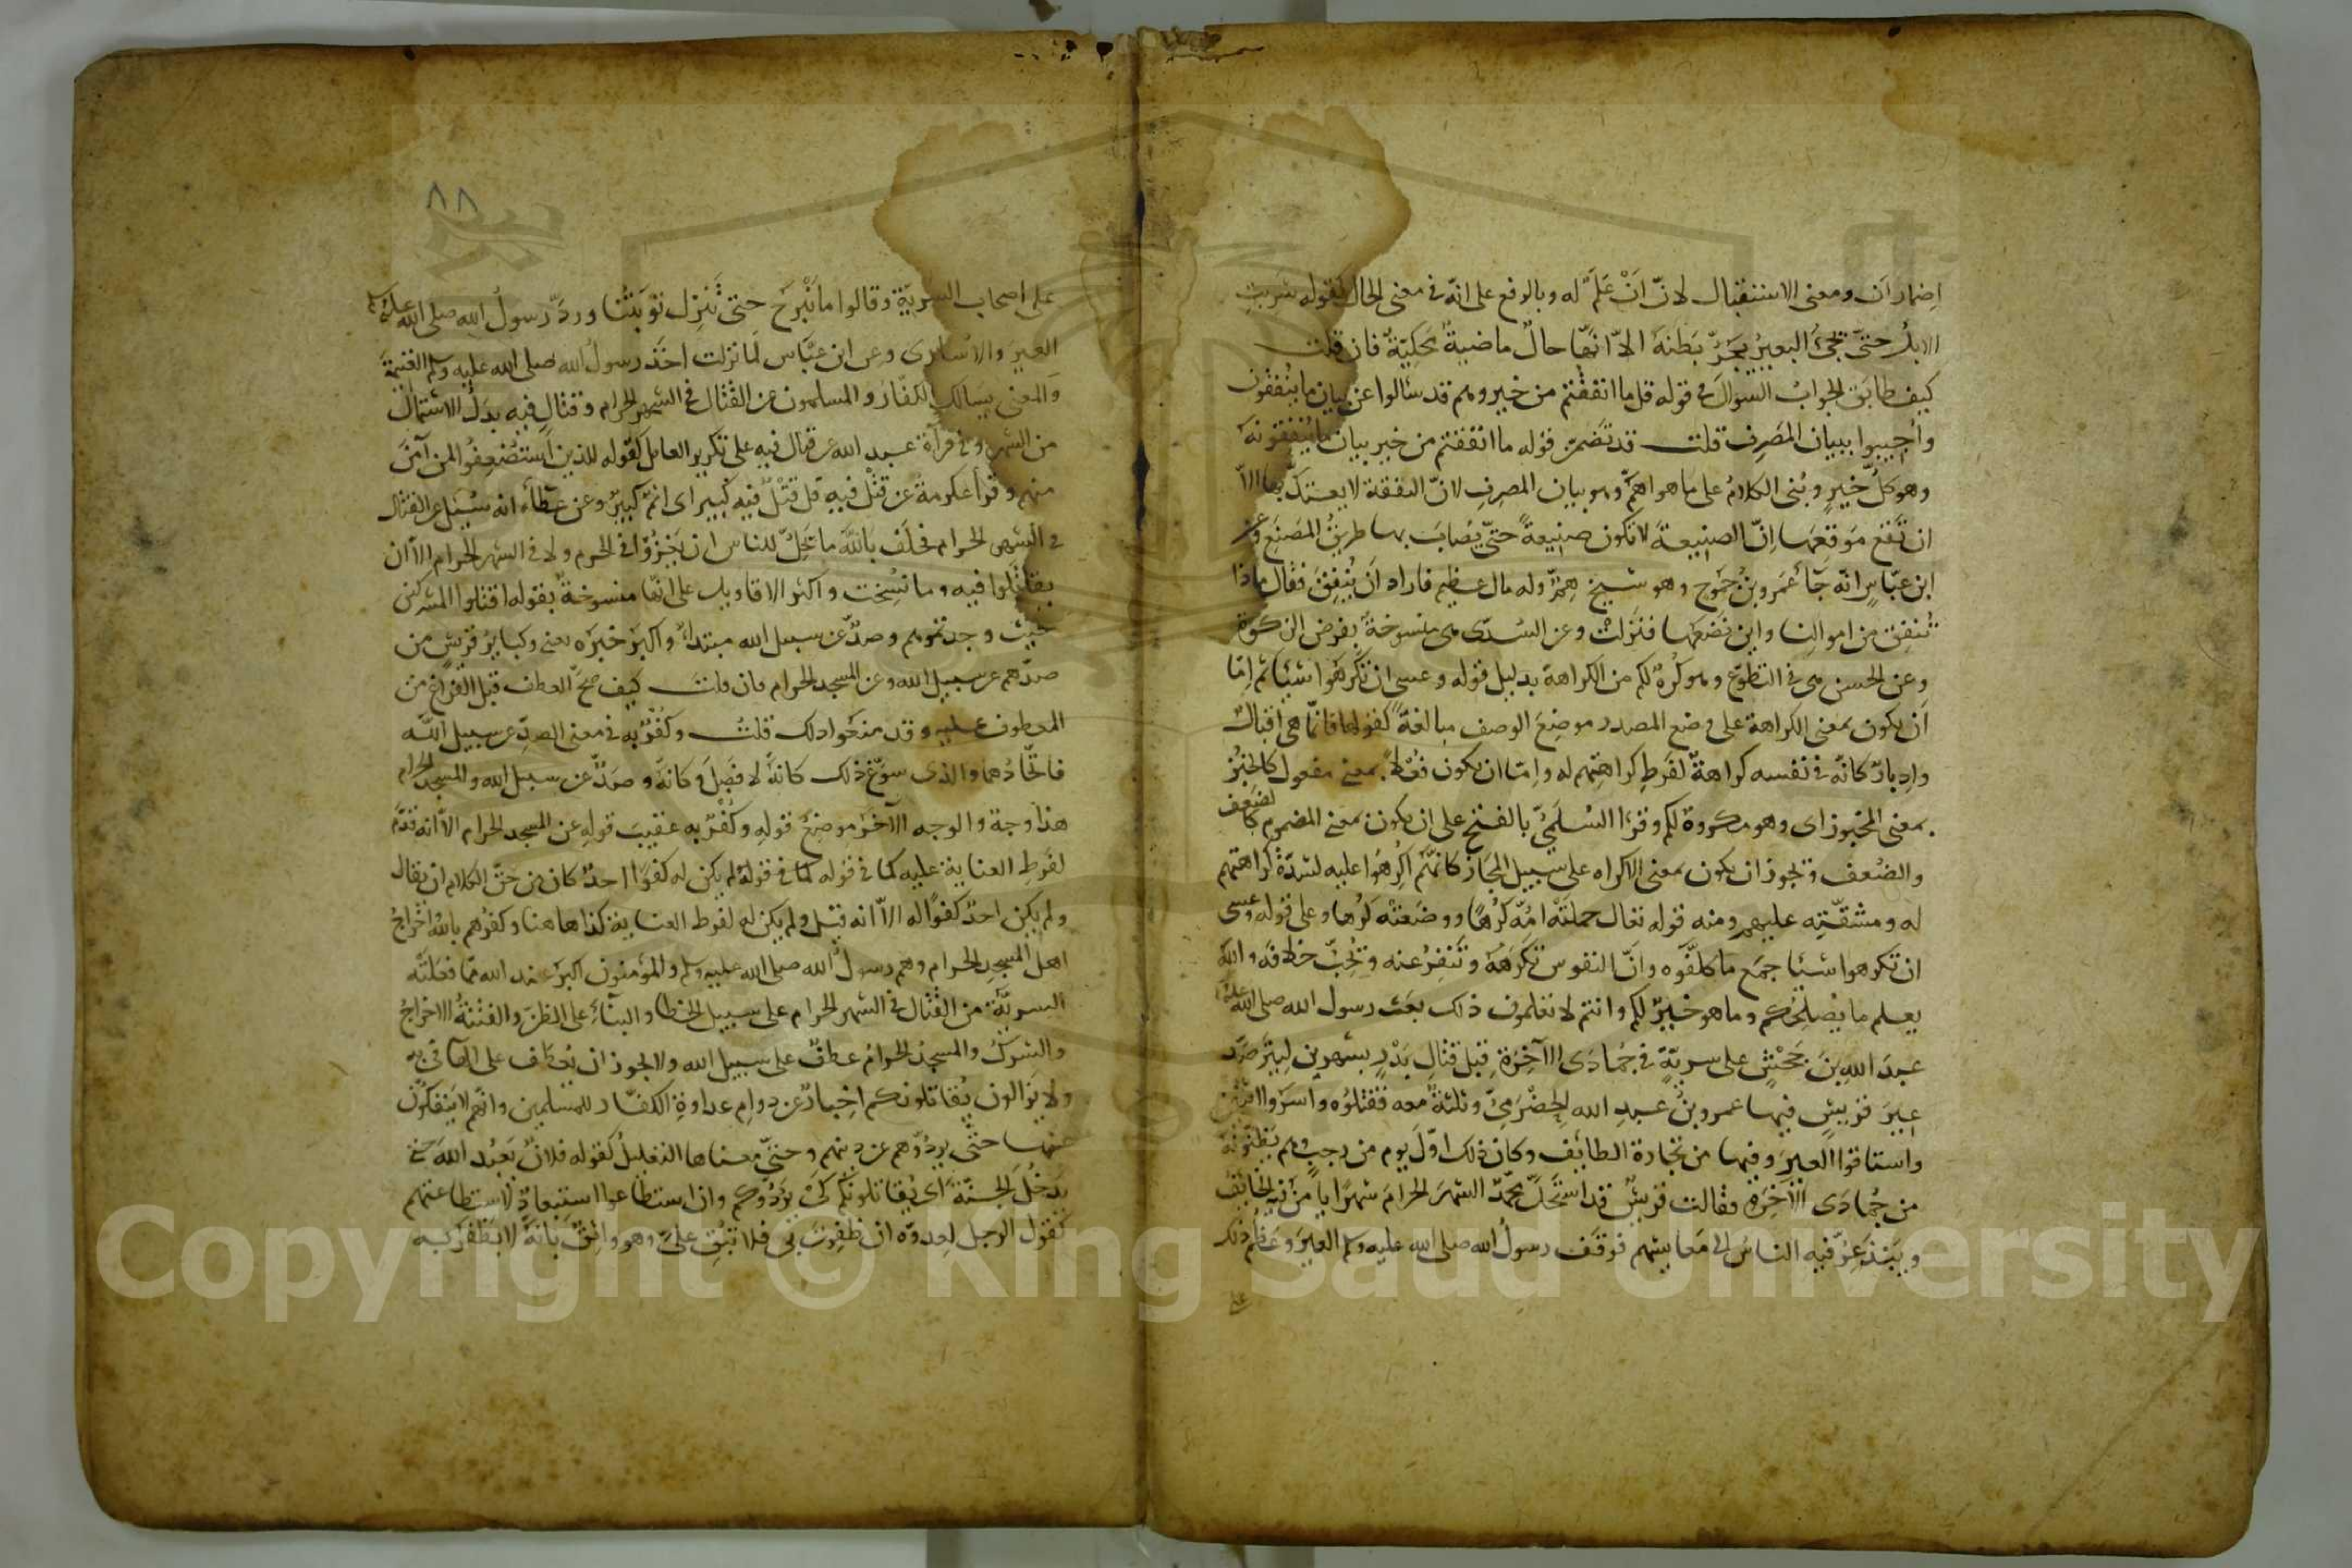 اِضمار اَن ومعنى الاستقبال لانّ اَنْ عَلَمٌ له وبالرفع على انّه في معنى الحال كقوله شربتِ
الابلُ حتّى يجئُ البعيرُ يجرُّ بَطْنَهَ الاّ انّها حالٌ ماضيةٌ مَحكيّةٌ فان قلت
كيف طابَق الجوابُ السوالَ في قوله قل ما انفقتم من خير وهم قد سألوا عن بيان ما ينفقون
واُجيبوا ببيان المصَرِف قلت قد تضمّن قوله ما انفقتم من خير بيان ما ينفقونهَ
وهو كلُّ خيرٍ وبُنى الكلامُ على ما هو اهمُّ وهو بيان المصرِف لانّ النفقة لا يعتدّ بها الاّ
ان تقع مَوقعَها اِنّ الصنيعةَ لا تكون صنيعةً حتّى يُصابَ بها طريقُ المصنَع وعن
ابن عبّاسٍ انّه جَآ عَمرو بنُ جموح وهو شيخ هِمٌّ وله مال عظيم فاراد اَن يُنفِقَ فقال ماذا
نُنفِق من اموالنا واين نَضَعُها فنَزلَتْ وعن السُدّى هى منسوخةٌ بفرض الزكوة
وعن الحسن هى في التطوّع وهو كُرهٌ لكم من الكراهة بدليل قوله وعسى ان تكرَهُوا شيئا ثم اِمّا
اَن يكون بمعنى الكراهة على وضع المصدر موضِعَ الوصف مبالغةً كقولها فانّما هى اقبالٌ
وادبارٌ كانّه في نفسه كراهةٌ لفَرطِ كراهتِهم له واِمّا ان يكون فُعْلا بمعنى مفعول كالخُبْز
بمعنى المخبوز اى وهو مكروهٌ لكم وقرَا السُلَمىُّ بالفتح على ان يكون بمعنى المضموم كالضَعف
والضُعف ويجوز ان يكون بمعنى الاكراه على سبيل المجَاز كانّهم اُكرِهُوا عليه لشدّة كراهتهم
له ومشقّتِه عليهم ومنه قوله تعالى حملَتْهُ امُّه كُرْهًا ووضَعتْه كُرْها وعلى قوله وعسى
ان تكرهوا شيئا جميع ما كلفّوه وانّ النفوس تكرَهُهُ وتَنفِرُ عنه وتُحِبّ خلافَه والله
يعلم ما يُصلِحُكم وما هو خيرٌ لكم وانتم لا تعلمون ذلك بعَثَ رسول الله صلى الله عليه
عبدَ اللهِ بنَ جَحْشٍ على سريّةٍ في جُمادَى الآخرةِ قبلَ قتالِ بَدْرٍ بشهرين لِيترصّد
عِيرَ قريشٍ فيها عمرو بنُ عبدِ الله الحضْرَمىّ وثلثةٌ معه فقتلُوه واسَرُوا اثنين
واستاقوا العيرَ وفيها من تجارة الطائف وكان ذلك اوّلَ يوم من رجبٍ وهم يظنّونَهُ
من جُمادَى الآخِرَةِ فقالت قريشٌ قد استَحَلَّ محمّد الشهرَ الحرامَ شهرًا يأمَن فيه الخائف
ويَبْذَعِرُّ فيه الناسُ الى مَعايشهم فوقَف رسولُ الله صلى الله عليه وسلم العيرَ وعَظُم ذلك
على
٨٨
على اصحاب السريّةِ وقالوا ما نَبْرَحُ حتى تَنزِل توبَتُنا ورَدّ رسولُ الله صلى الله عليه وسلم
العِيرَ والاُسارَى وعن ابن عبّاس لما نزلت اخذ رسولُ الله صلى الله عليه وسلم الغنيمةَ
والمعنى يسالك الكفّارُ والمسلمون عن القتال في الشهر الحرام وقتالٍ فيه بدلُ الاشتمال
من الشهر وفي قرآة عبد الله عن قتال فيه على تكرير العامل كقوله للذين استُضْعِفُوا لمن آمَنَ
منهم وقرأ عكرمةُ عن قَتْل فيه قل قَتْلٌ فيه كبير اى اثمٌ كبيرٌ وعن عطآء انه سُئل عن القتال
في الشهر الحرام فحلَف بالله ما يَحِلُّ للناس ان يَغزُوْا في الحرم ولا في الشهر الحرام الاّ ان
يقاتَلوا فيه وما نُسِخت واكثر الاقاويل على انّها منسوخةٌ بقوله اقتلوا المشركين
حيث وجدتموهم وصدٌّ عن سبيل الله مبتداٌ واكبرُ خبرَه يعنى وكبايرُ قريشٍ من
صدّهم عن سبيل الله وعن المسجد الحرام فان قلت كيف صحّ العطف قبل الفراغ من
المعطوف عليه وقد منعوا ذلك قلتُ وكُفْرٌ به في معنى الصدِّ عن سبيل الله
فاتّحادُهما والذى سوّغ ذلك كانهُ لا فصْلَ وكانه وصَدٌّ عن سبيل الله والمسجد الحرام
هذا وجهٌ والوجه الآخَر موضِعُ قوله وكُفْرٌ به عقيبَ قولِه عن المسجد الحرام الاّ انه قدّم
لفَرطِ العناية عليه كما في قوله كما في قوله لم يكن له كفوًا احدٌ كان من حقّ الكلام ان يقال
ولم يكن احدٌ كفوًا له الاّ انه قيل ولم يكن له لفرط العناية كذا هاهنا وكفرُهم بالله اخراجُ
اهل المسجدِ الحرام وهم رسولُ الله صلى الله عليه وسلم والمؤمنون اكبرُ عند الله ممّا فعلَتْه
السريّةُ من القتال في الشهر الحرام على سبيل الخطا والبنآءِ على الظنّ والفتنةُ الاخراجُ
والشركُ والمسجدُ الحرامُ عطفٌ على سبيل الله ولا يجوز ان يُعطَف على الهآ في به
ولا يزالون يُقاتلونكم اخبارٌ عن دوامِ عداوةِ الكفّار للمسلمين وانّهم لا ينفكّون
عنها حتّى يردُّوهم عن دينهم وحتىّ معناها التعليلُ كقوله فلانٌ يَعبُد اللهَ حتى
يدخُلَ الجنّةَ اى يُقاتلونكم كىْ يَرُدّوكم وان استطاعوا استِبعادٌ لاستطاعتهم
كقول الرجل لعدوّه ان ظفِرتَ بى فلا تُبْقِ علىّ وهو واثقٌ بانّهُ لا يَظْفَر به